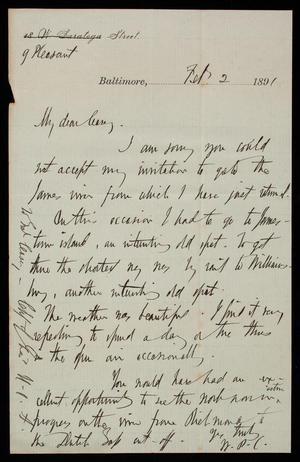 48 W Saratoga Street.
9 Pleasant
Baltimore, Feb 2 1891
My dear Casey.
I am sorry you could
not accept my invitation to go to the
James river from which I have just returned.
On this occasion I had to go to James-
town island, an interesting old spot. To get
there the shortest way was by rail to Williams-
burg, another interesting old spot.
The weather was beautiful. I find it very
refreshing to spend a day or two thus
in the open air occasionally.
You would have had an ex-
cellent opportunity to see the work now in
progress on the river from Richmond to
the Dutch Gap cut-off.
Yrs truly
W. P. C.